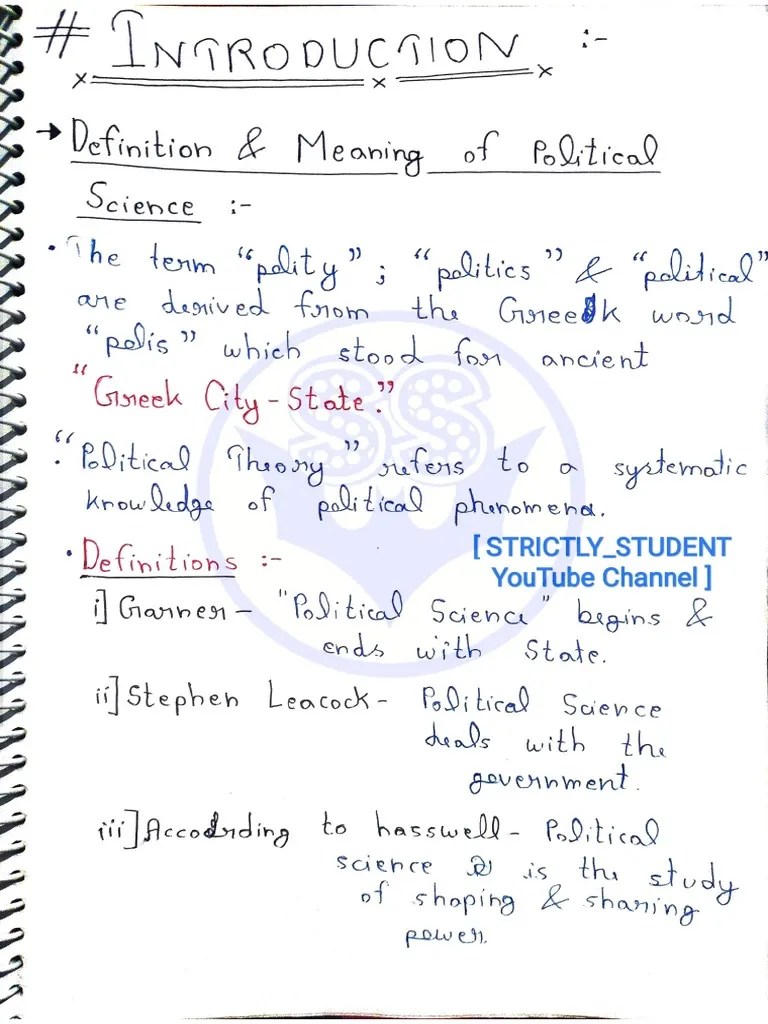 # INTRODUCTION :-
→ Definition & Meaning of Political
Science :-
• The term "polity" ; "politics" & "political"
are derived from the Greek word
"polis" which stood for ancient
"Greek City-State."
• "Political Theory" refers to a systematic
knowledge of political phenomena.
[ STRICTLY_STUDENT
YouTube Channel ]
• Definitions :-
i] Garner - "Political Science" begins &
ends with State.
ii] Stephen Leacock - Political Science
deals with the
government.
iii] According to hasswell - Political
science is the study
of shaping & sharing
power.
SS